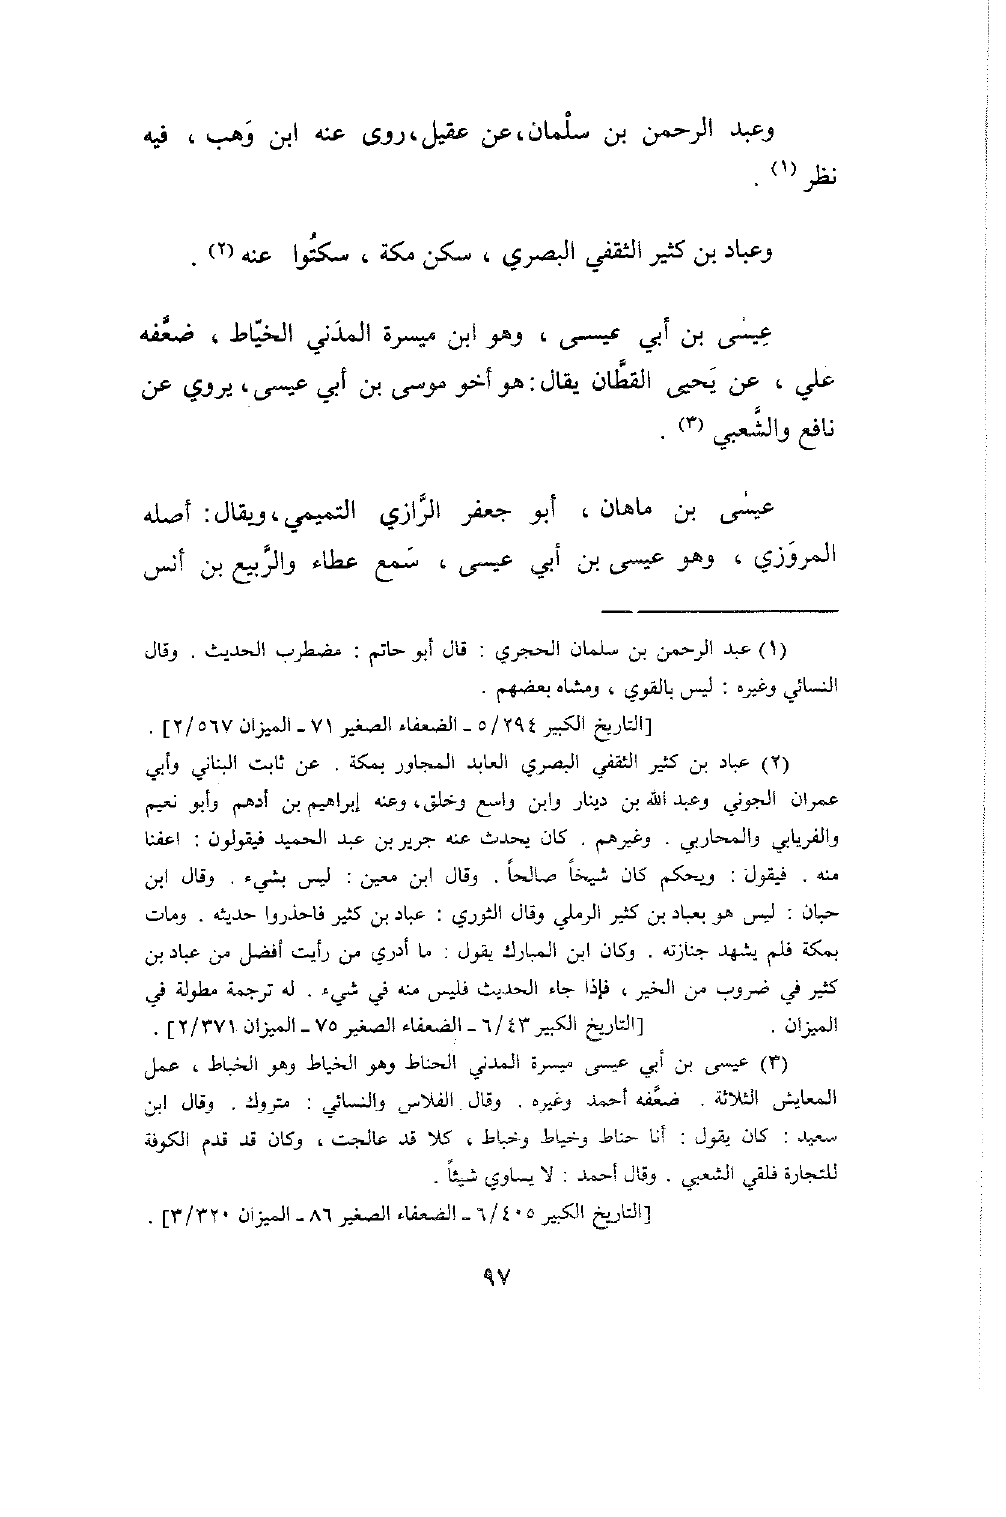 وعبد الرحمن بن سلْمان، عن عقيل، روى عنه ابن وَهب ، فيه
نظر (١) .
وعباد بن كثير الثقفي البصري ، سكن مكة ، سكتُوا عنه (٢) .
عِيسٰى بن أبي عيسى ، وهو ابن ميسرة المدَني الخيّاط ، ضعَّفه
علي ، عن يَحيى القطَّان يقال : هو أخو موسى بن أبي عيسى، يروي عن
نافع والشَّعبي (٣) .
عيسٰى بن ماهان ، أبو جعفر الرَّازي التميمي، ويقال : أصله
المروَزي ، وهو عيسى بن أبي عيسى ، سَمع عطاء والرَّبيع بن أنس
(١) عبد الرحمن بن سلمان الحجري : قال أبو حاتم : مضطرب الحديث . وقال
النسائي وغيره : ليس بالقوي ، ومشاه بعضهم .
[التاريخ الكبير ٥/٢٩٤ ـ الضعفاء الصغير ٧١ ـ الميزان ٢/٥٦٧] .
(٢) عباد بن كثير الثقفي البصري العابد المجاور بمكة . عن ثابت البناني وأبي
عمران الجوني وعبد الله بن دينار وابن واسع وخلق، وعنه إبراهيم بن أدهم وأبو نعيم
والفريابي والمحاربي . وغيرهم . كان يحدث عنه جرير بن عبد الحميد فيقولون : اعفنا
منه . فيقول : ويحكم كان شيخاً صالحاً . وقال ابن معين : ليس بشيء . وقال ابن
حبان : ليس هو بعباد بن كثير الرملي وقال الثوري : عباد بن كثير فاحذروا حديثه . ومات
بمكة فلم يشهد جنازته . وكان ابن المبارك يقول : ما أدري من رأيت أفضل من عباد بن
كثير في ضروب من الخير ، فإذا جاء الحديث فليس منه في شيء . له ترجمة مطولة في
الميزان . [التاريخ الكبير ٦/٤٣ ـ الضعفاء الصغير ٧٥ ـ الميزان ٢/٣٧١] .
(٣) عيسى بن أبي عيسى ميسرة المدني الحناط وهو الخياط وهو الخباط ، عمل
المعايش الثلاثة . ضعَّفه أحمد وغيره . وقال الفلاس والنسائي : متروك . وقال ابن
سعيد : كان يقول : أنا حناط وخياط وخباط ، كلا قد عالجت ، وكان قد قدم الكوفة
للتجارة فلقي الشعبي . وقال أحمد : لا يساوي شيئاً .
[التاريخ الكبير ٦/٤٠٥ ـ الضعفاء الصغير ٨٦ ـ الميزان ٣/٣٢٠] .
٩٧